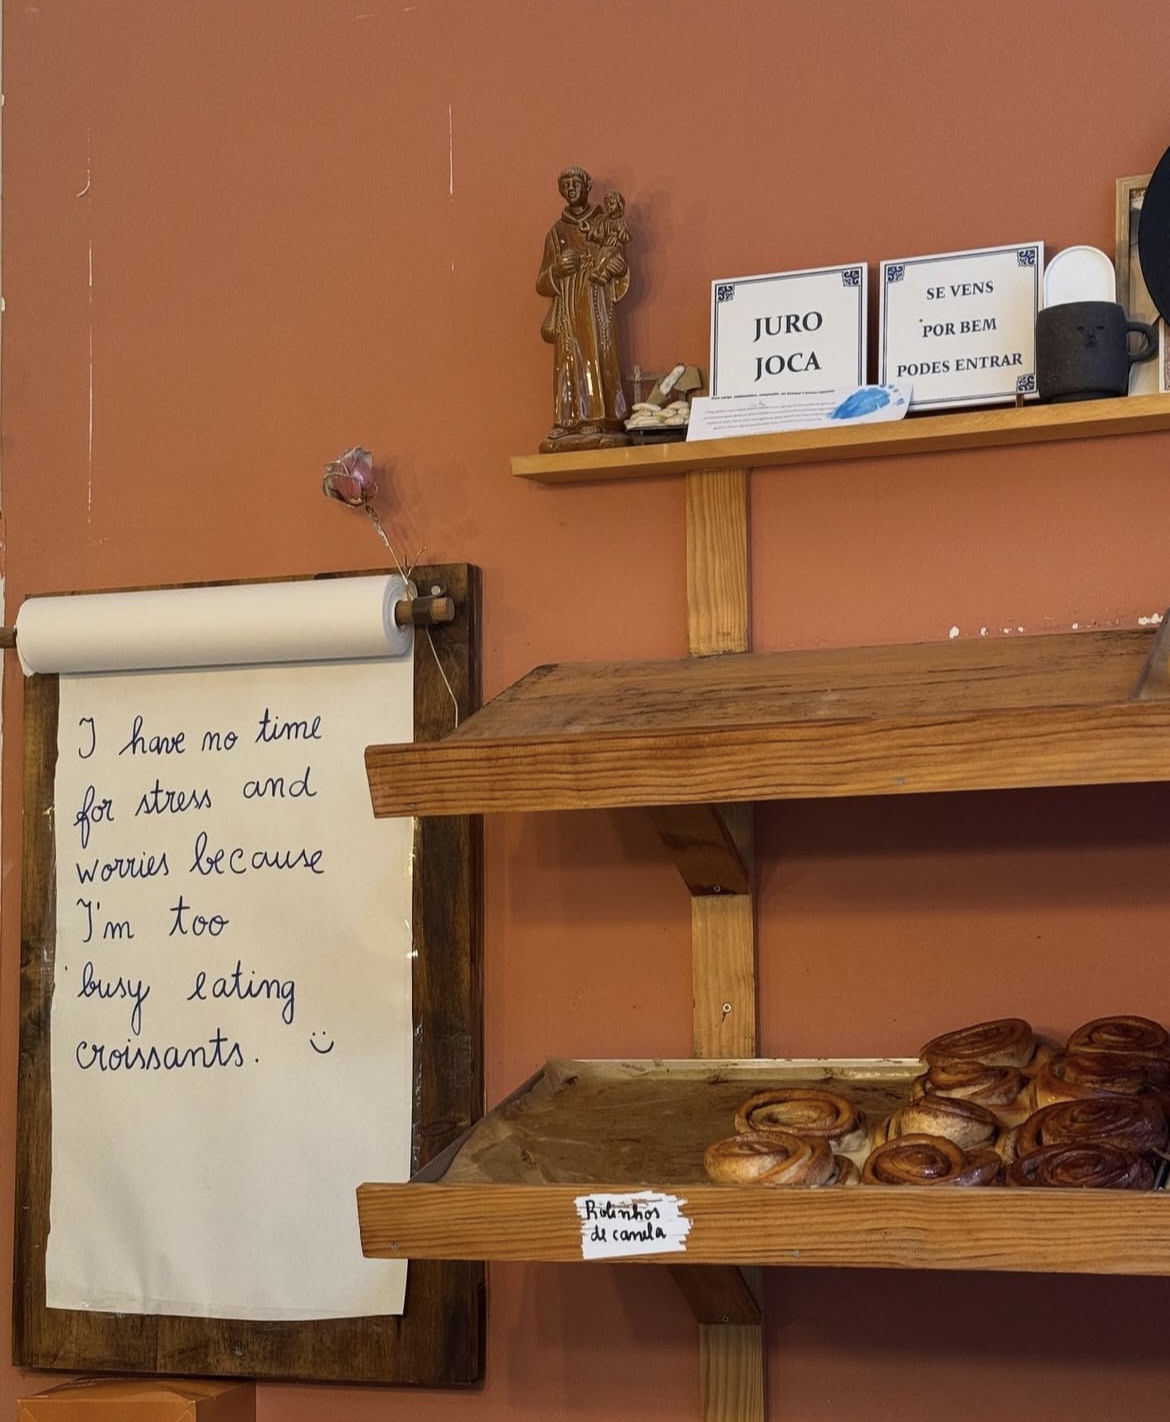 JURO
JOCA
SE VENS
POR BEM
PODES ENTRAR
I have no time
for stress and
worries because
I'm too
busy eating
croissants. :)
Rolinhos
de canela